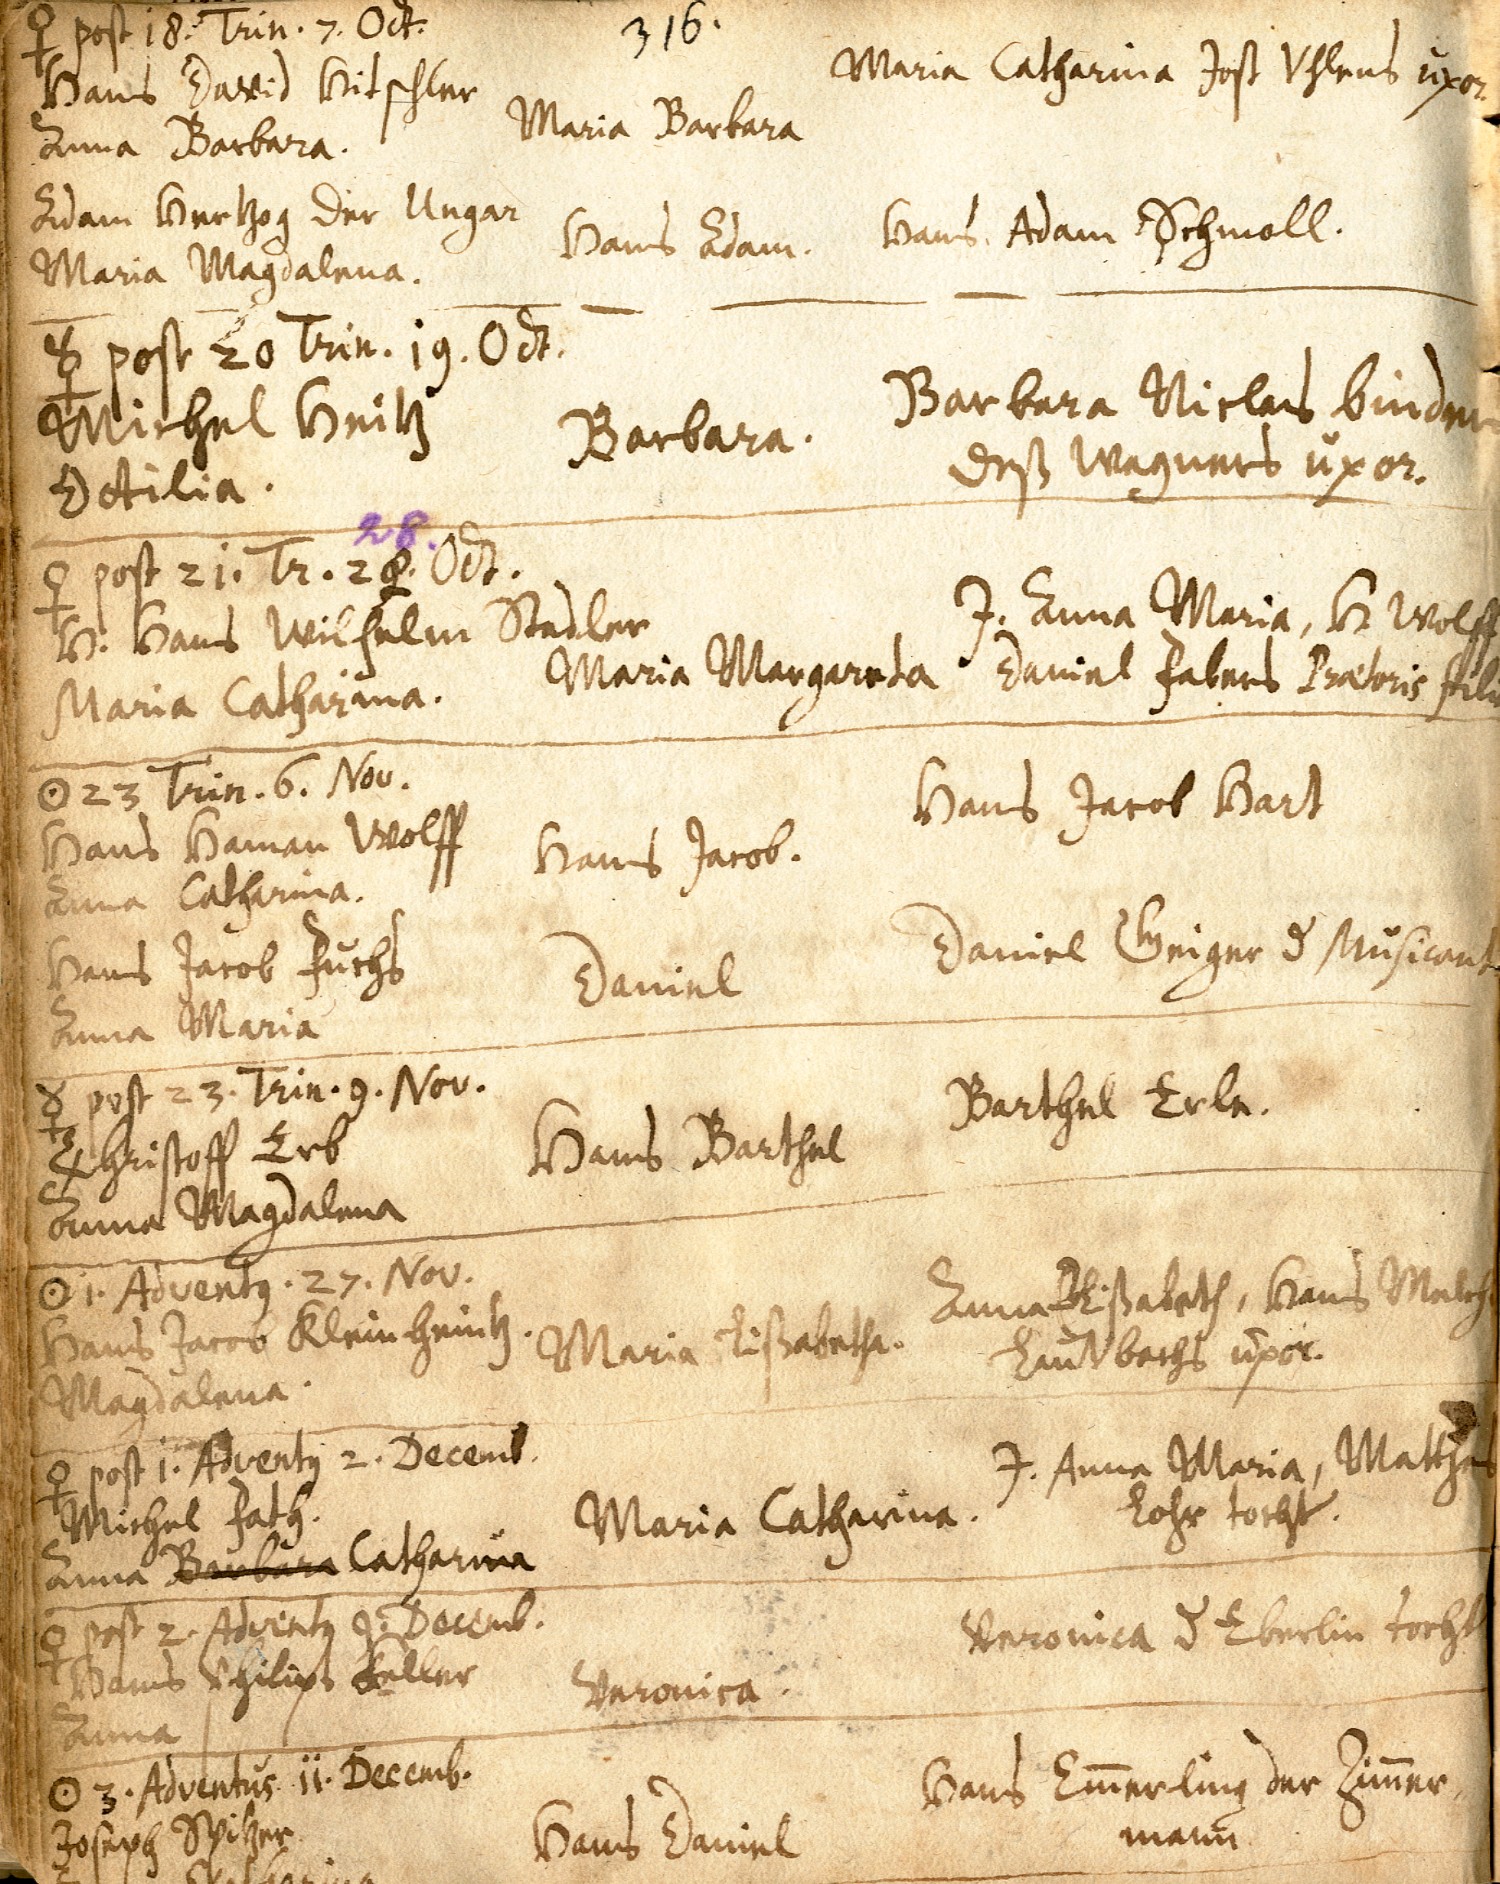 316.
♀ post 18. Trin. 7. Oct.
Hans David Hitschler
Anna Barbara.
Maria Barbara
Maria Catharina Jost Uhlens uxor.
Adam Hertzog der Ungar
Maria Magdalena.
Hans Adam.
Hans Adam Schmoll.
☿ post 20 Trin. 19. Oct.
Michel Heitz
Ottilia.
Barbara.
Barbara Niclaus binder
deß Wagners uxor.
28.
♀ post 21. Tr. 28. Oct.
H. Hans Wilhelm Stadler
Maria Catharina.
Maria Margareta
J. Anna Maria, H. Wolff
Daniel Fabers Prætoris filia
☉ 23 Trin. 6. Nov.
Hans Haman Wolff
Anna Catharina.
Hans Jacob.
Hans Jacob Hart
Hans Jacob Fuchs
Anna Maria
Daniel
Daniel Geiger d Musicant
☿ post 23. Trin. 9. Nov.
Christoff Erb
Anna Magdalena
Hans Barthel
Barthel Erle.
☉ 1. Adventus. 27. Nov.
Hans Jacob Kleinheintz.
Magdalena.
Maria Elißabetha.
Anna Elißabeth, Hans Melch
Laubachs uxor.
♀ post 1. Adventus 2. Decemb.
Michel Fath.
Anna Barbara Catharina
Maria Catharina.
J. Anna Maria, Matthes
Lohr tocht.
♀ post 2. Adventus 9. Decemb.
Hans Philips Keller
Anna
Veronica.
Veronica d Eberlin tocht
☉ 3. Adventus 11. Decemb.
Joseph Spitzer
Hans Daniel
Hans Em̄erling der Zim̄er
mann